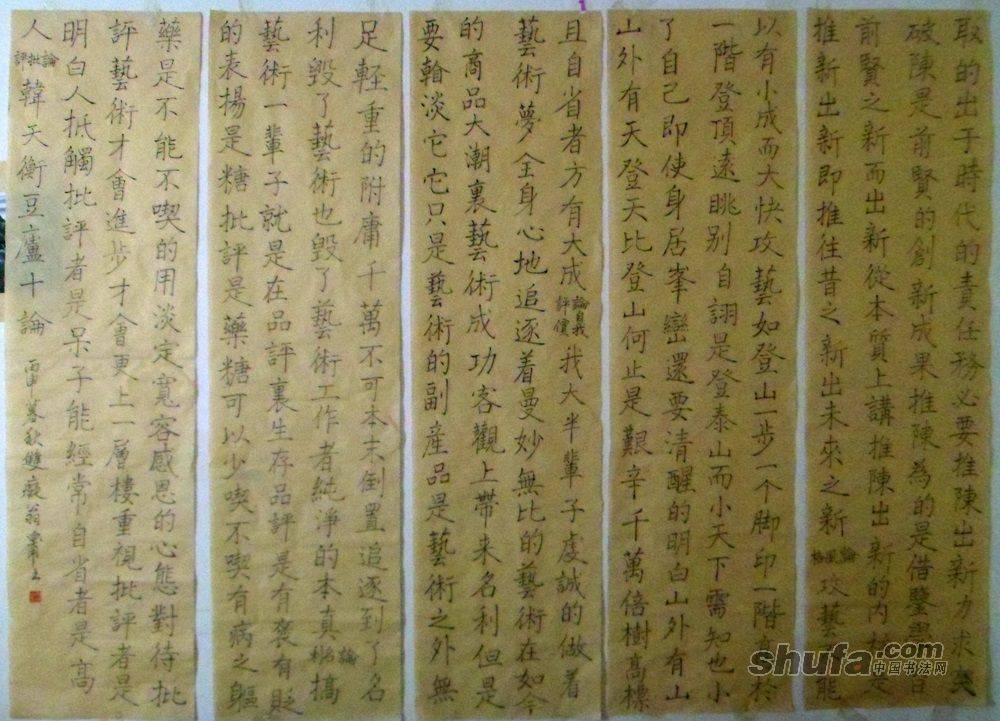 取的出于時代的責任務必要推陳出新力求突
破陳是前賢的創新成果推陳為的是借鑒
前賢之新而出新從本質上講推陳出新的内是
推新出新即推往昔之新出未來之新
論風格
攻藝能
以有小成而大快攻藝如登山一步一个脚印一階高於
一階登頂遠眺别自詡是登泰山而小天下需知也小
了自己即使身居峯巒還要清醒的明白山外有山
山外有天登天比登山何止是艱辛千萬倍樹高標
且自省者方有大成
論自我
評價
我大半輩子虔誠的做着
藝術夢全身心地追逐着曼妙無比的藝術在如今
的商品大潮裏藝術成功客觀上帶来名利但是
要翰淡它它只是藝術的副産品是藝術之外無
足輕重的附庸千萬不可本末倒置追逐到了名
利毀了藝術也毀了藝術工作者純淨的本真
論名利
搞
藝術一輩子就是在品評裏生存品評是有褒有貶
的表揚是糖批評是藥糖可以少喫不喫有病之軀
藥是不能不喫的用淡定寬容感恩的心態對待批
評藝術才會進步才會更上一層樓重視批評者是
明白人抵觸批評者是呆子能經常自省者是高
人
論批評
韓天衡豆廬十論
雷
秋雙癡翁肅之
shufa.com
中国书法网
1